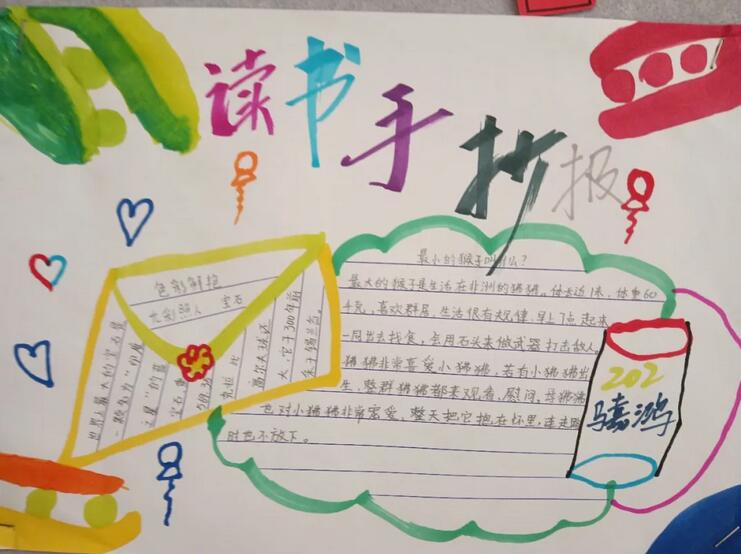 读书手抄报
色彩鲜艳
光彩照人 宝石
世界上最大的宝石是
一颗名为“印度
之星”的蓝
宝石重
563.35
克拉 比
高尔夫球还
大,它于300年前
采于锡兰岛。
最小的猴子叫什么?
最大的猴子是生活在非洲的狒狒。体长近1米,体重60
千克,喜欢群居,生活很有规律,早上7点起来
一同出去找食,会用石头来做武器打击敌人。
狒狒非常喜爱小狒狒,若有小狒狒出
生,整群狒狒都来观看、慰问,母狒狒
也对小狒狒非常宠爱,整天把它抱在怀里,连走路
时也不放下。
202
马嘉鸿